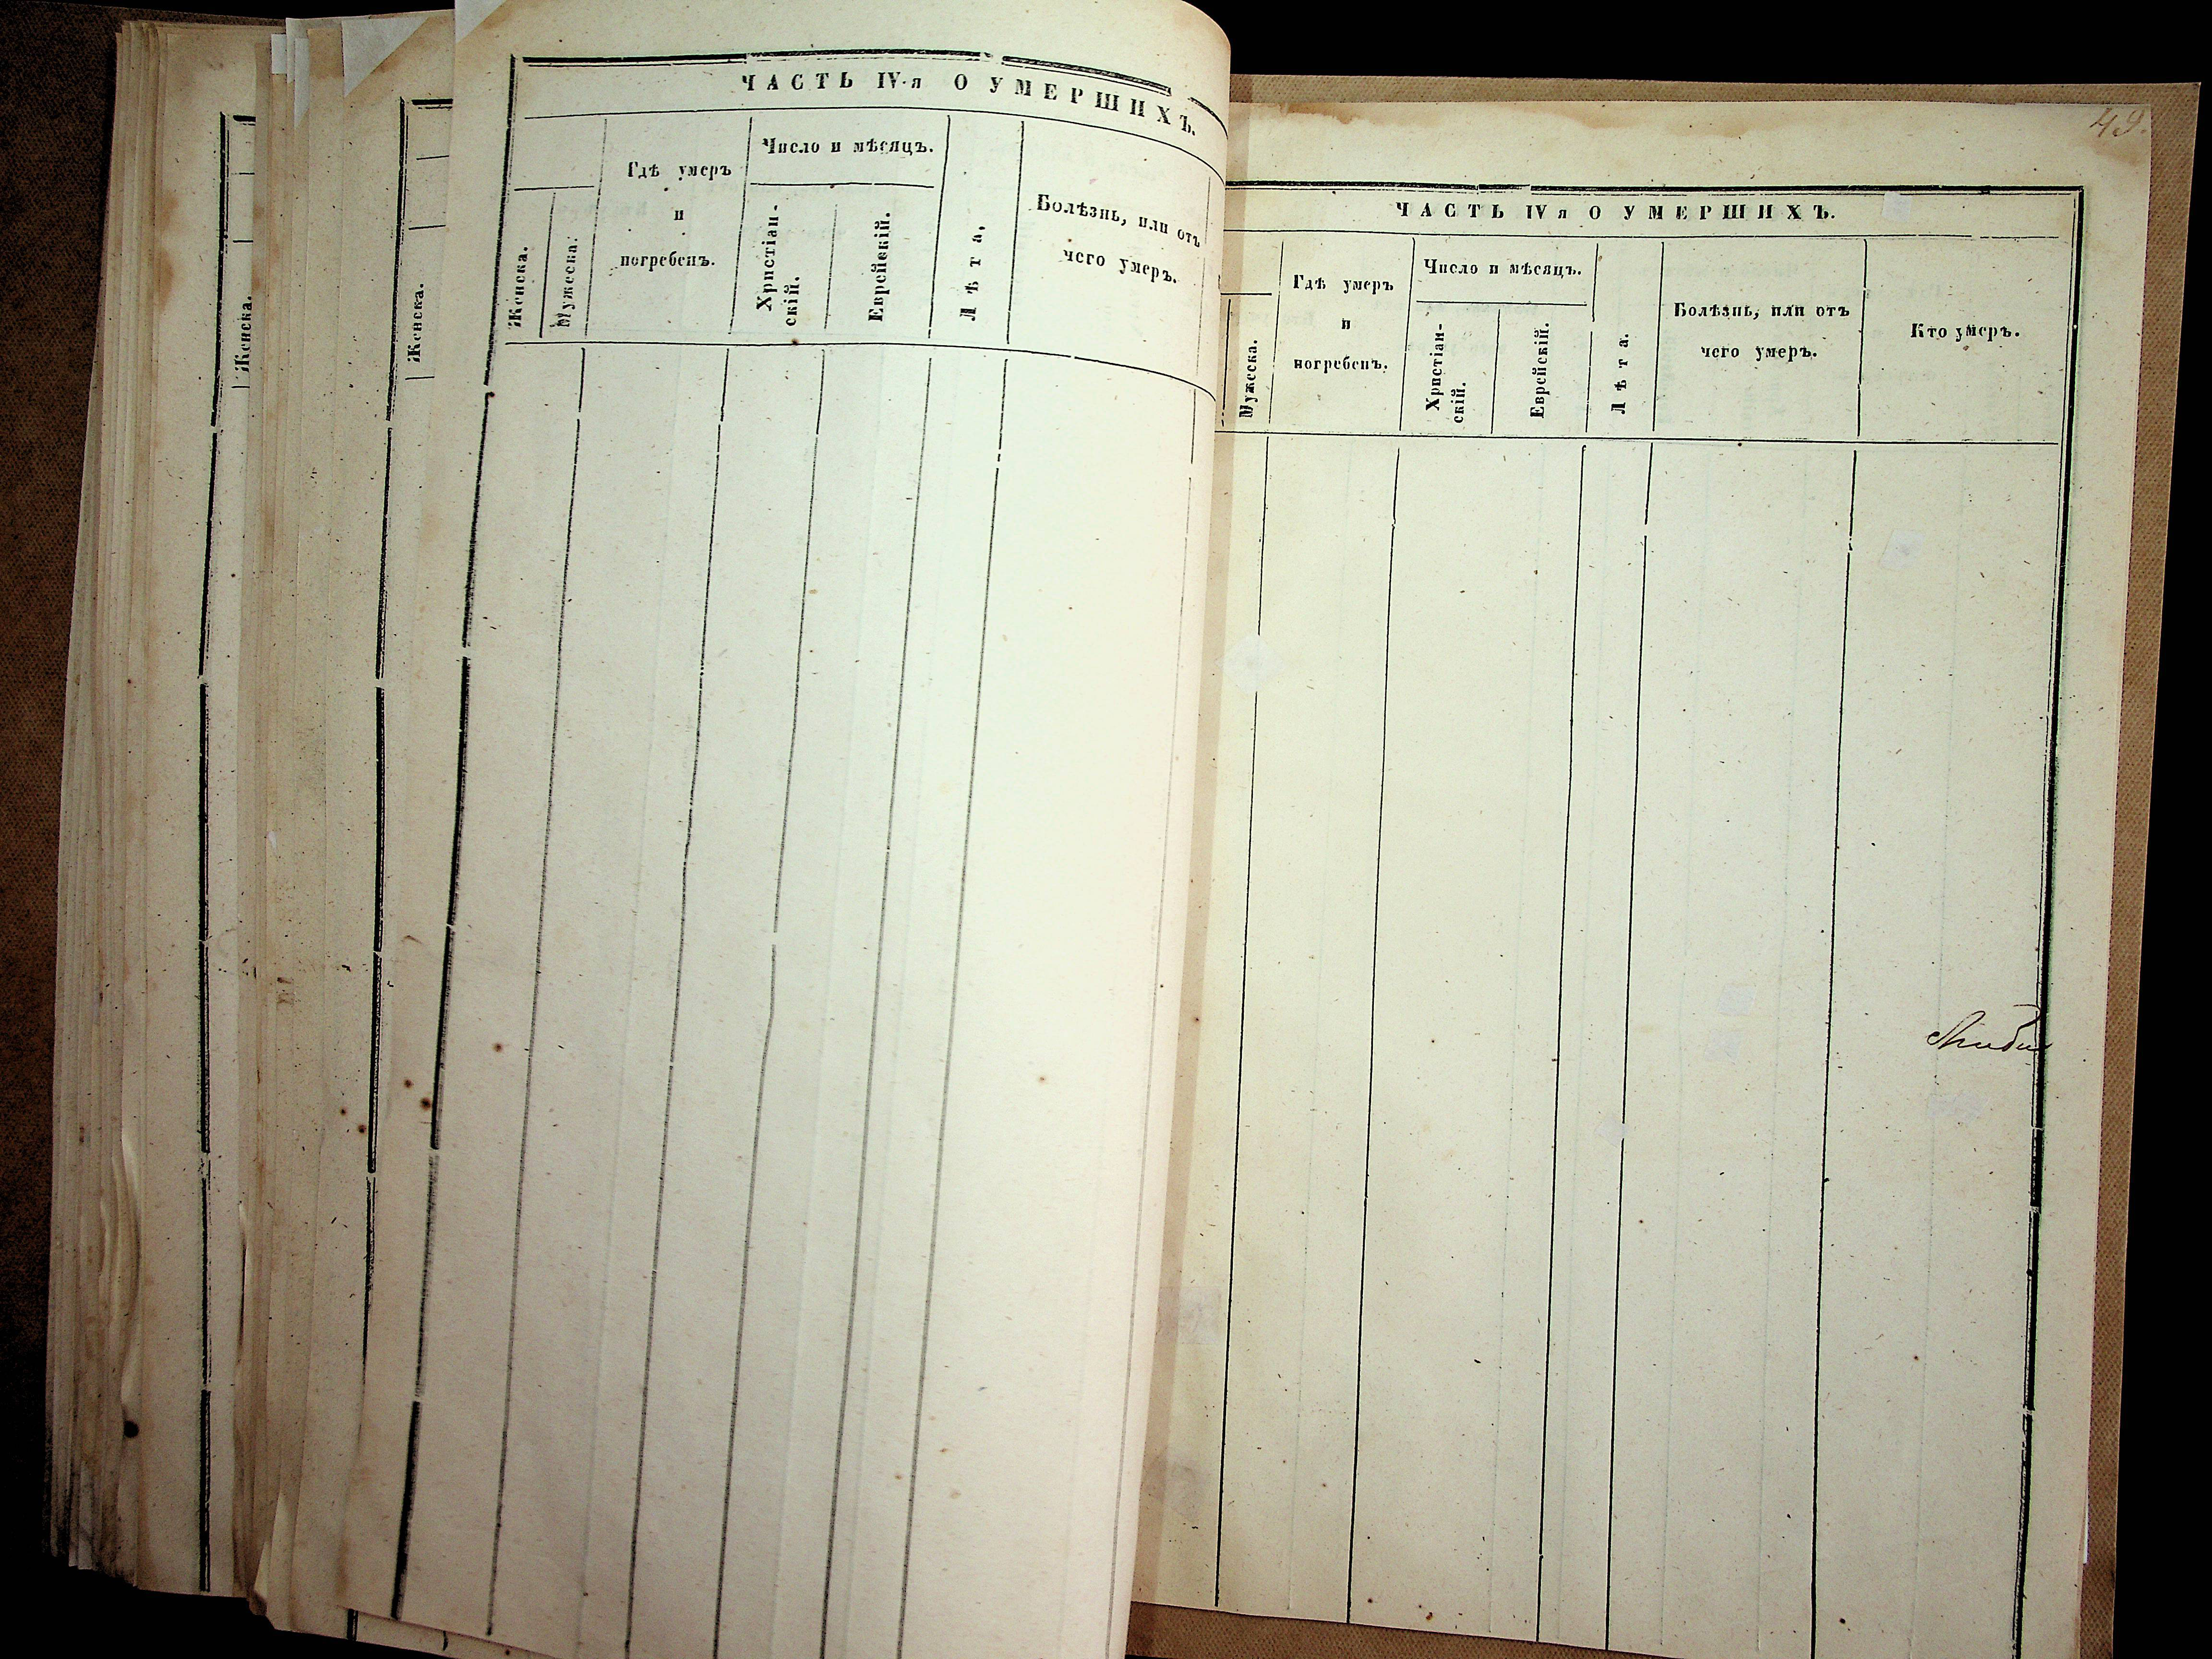 Женска.
Женска.
ЧАСТЬ IV-я О УМЕРШИХЪ.
Женска.
Мужеска.
Гдѣ умеръ
и
погребенъ.
Число и мѣсяцъ.
Христіан-
скій.
Еврейскій.
Лѣта.
Болѣзнь, или отъ
чего умеръ.
49.
ЧАСТЬ IV я О УМЕРШИХЪ.
Мужеска.
Гдѣ умеръ
и
погребенъ.
Число и мѣсяцъ.
Христіан-
скій.
Еврейскій.
Лѣта.
Болѣзнь, или отъ
чего умеръ.
Кто умеръ.